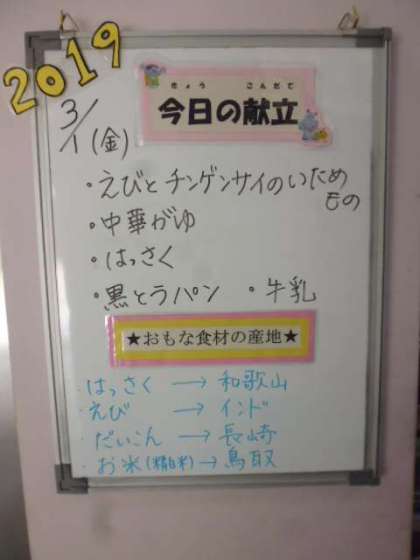 2019
きょう こんだて
今日の献立
3/1(金)
・えびとチンゲンサイのいため
もの
・中華がゆ
・はっさく
・黒とうパン ・牛乳
★おもな食材の産地★
・はっさく → 和歌山
・えび → インド
・だいこん → 長崎
・お米(精白米) → 鳥取